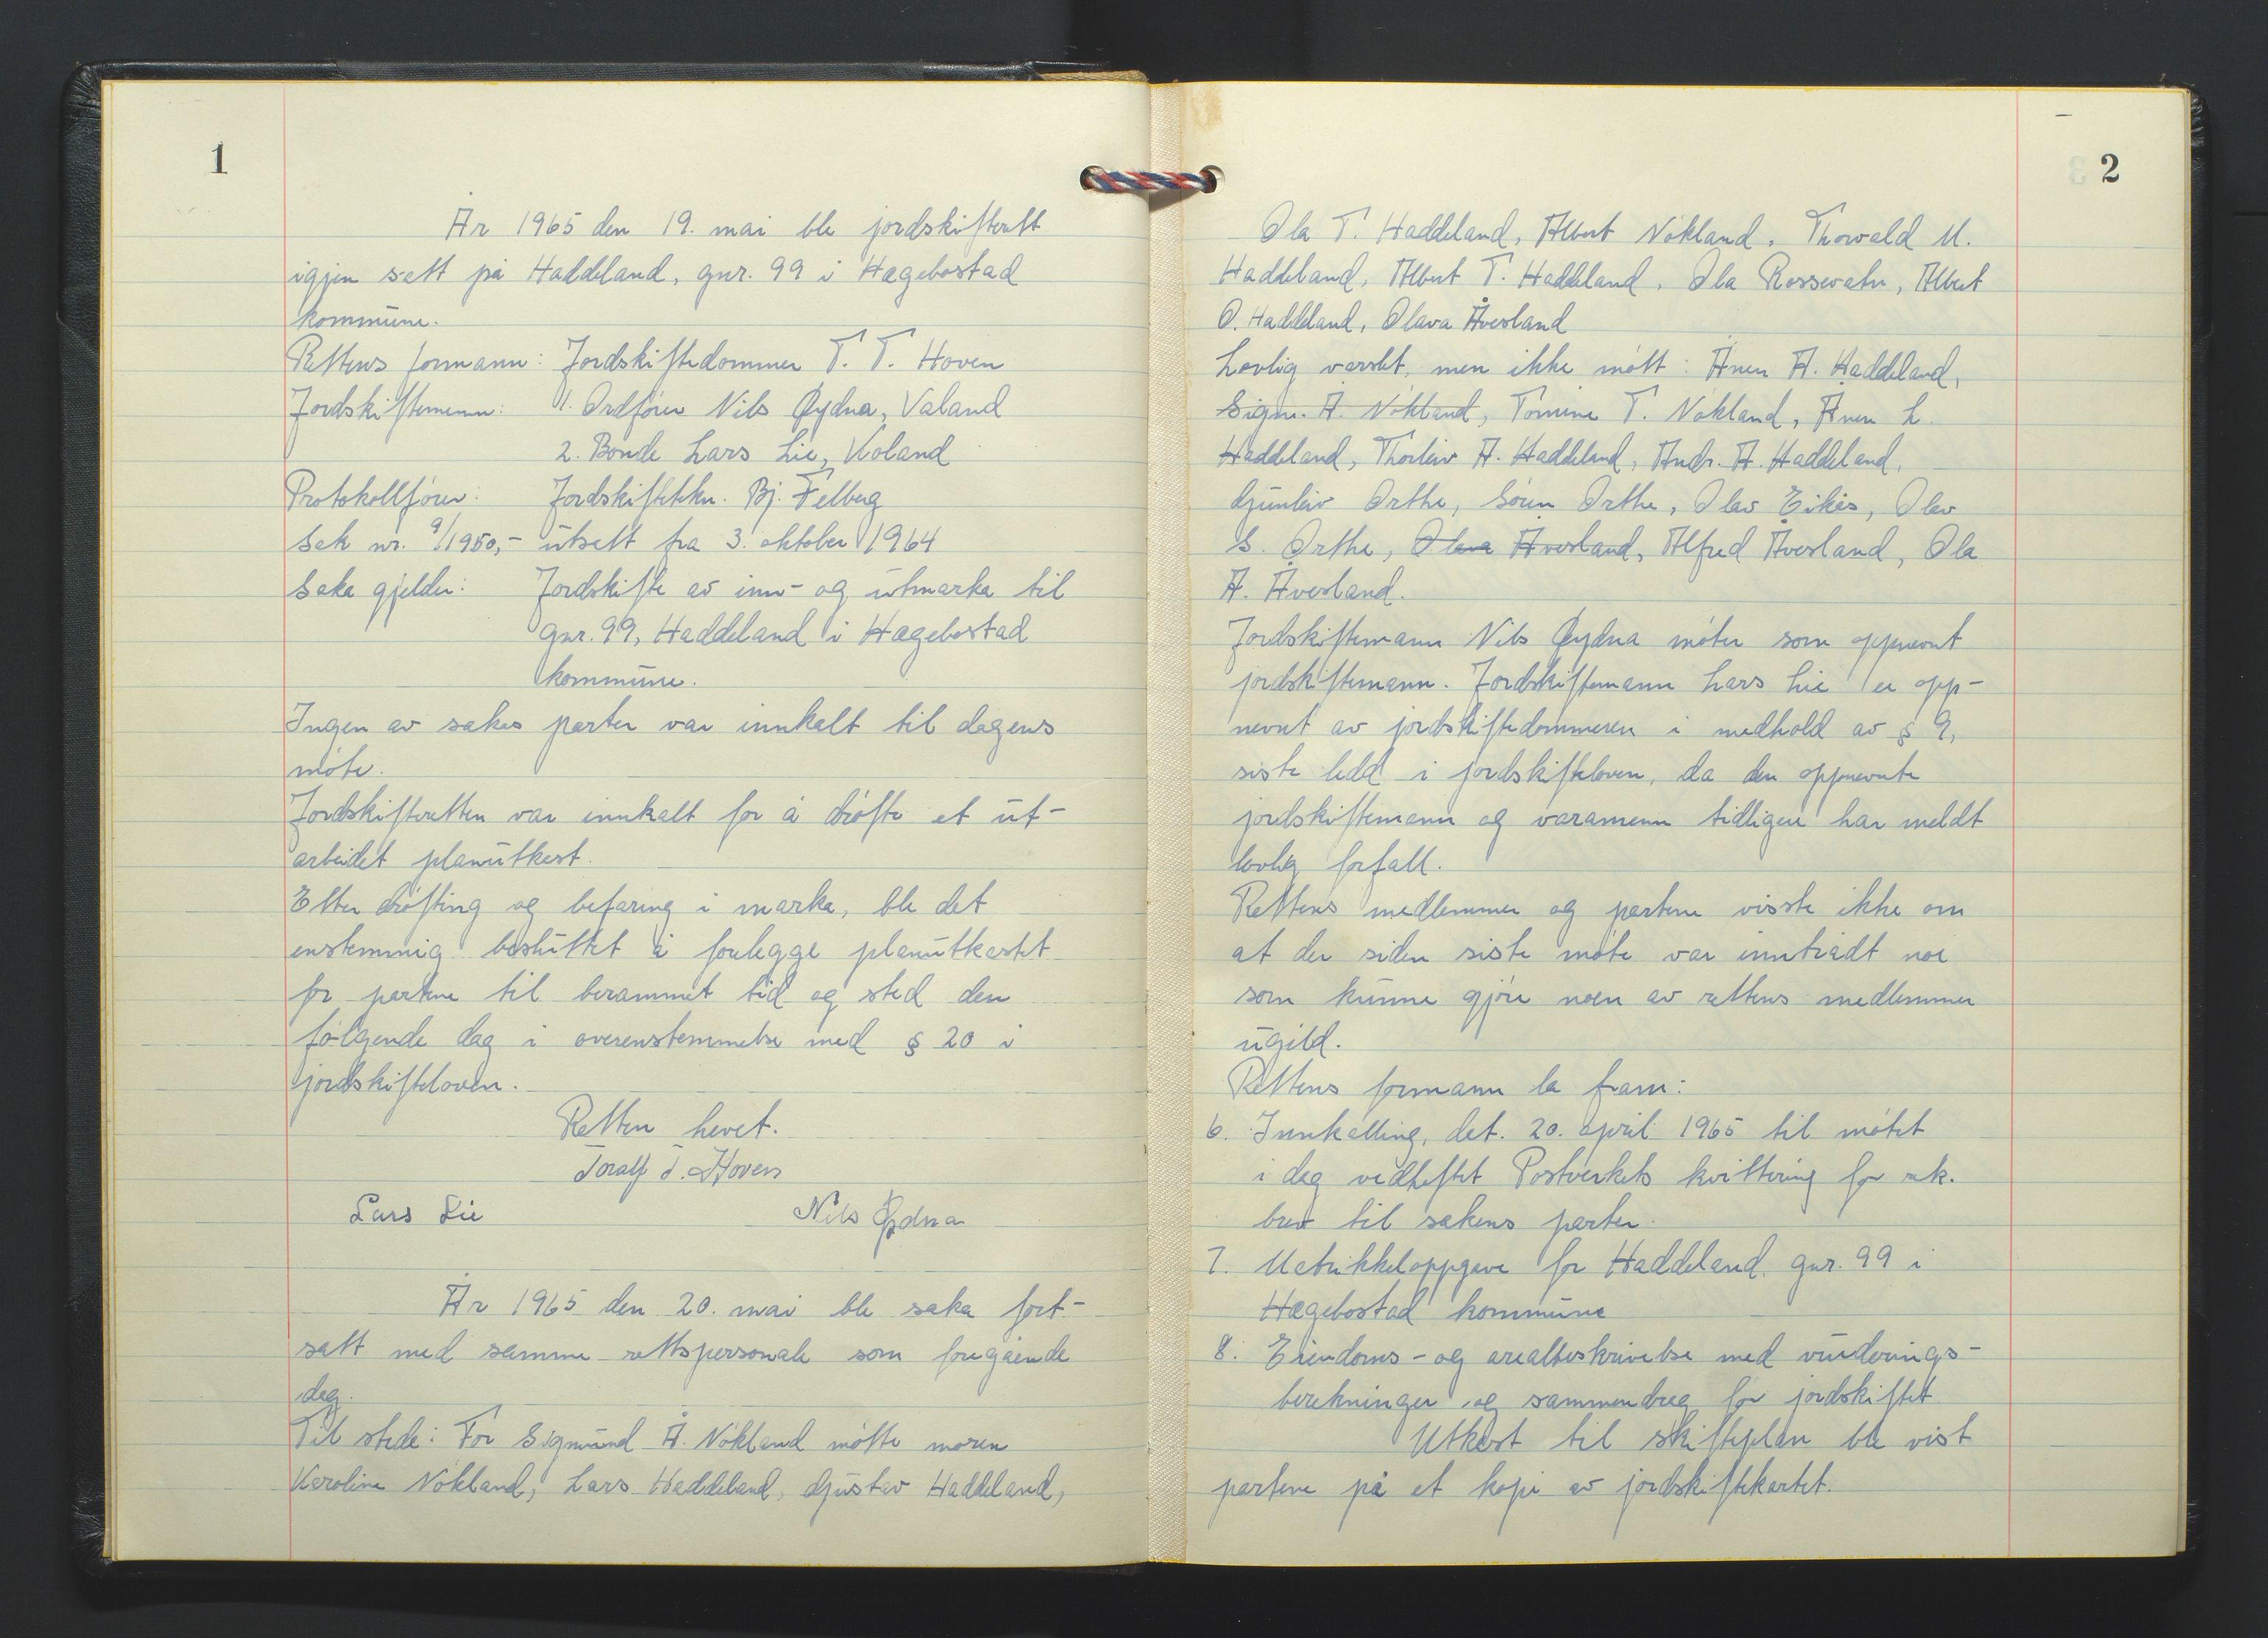 1
År 1965 den 19. mai ble jordskifterett
igjen satt på Haddeland, gnr. 99 i Hægebostad
kommune.
Rettens formann: Jordskiftedommer T. T. Hoven
Jordskiftemenn: 1. Ordfører Nils Øydna, Valand
2. Bonde Lars Lie, Koland
Protokollfører: Jordskiftetekn. Bj. Felberg
Sak nr. 9/1950,- utsatt fra 3. oktober 1964
Saka gjelder: Jordskifte av inn- og utmarka til
gnr. 99, Haddeland i Hægebostad
kommune.
Ingen av sakas parter var innkalt til dagens
møte.
Jordskifteretten var innkalt for å drøfte et ut-
arbeidet planutkast.
Etter drøfting og befaring i marka, ble det
enstemmig besluttet å forelegge planutkastet
for partene til berammet tid og sted den
følgende dag i overenstemmelse med § 20 i
jordskifteloven.
Retten hevet.
Toralf T. Hoven
Lars Lie Nils Øydna
År 1965 den 20. mai ble saka fort-
satt med samme rettspersonale som foregående
dag.
Til stede: For Sigmund A. Nökland møtte moren
Karoline Nökland, Lars Haddeland, Gustav Haddeland,
2
Ola T. Haddeland, Albert Nökland, Thorvald M.
Haddeland, Albert T. Haddeland, Ola Rossevatn, Albert
O. Haddeland, Olava Åvesland
Lovlig varslet, men ikke møtt: Ånen A. Haddeland,
Sigm. A. Nökland, Tomine T. Nökland, Ånen L.
Haddeland, Thorleiv A. Haddeland, Andr. A. Haddeland,
Gunleiv Orthe, Sören Orthe, Olav Eikås, Olav
S. Orthe, Olava Åvesland, Alfred Åvesland, Ola
A. Åvesland.
Jordskiftemann Nils Øydna møter som oppnevnt
jordskiftemann. Jordskiftemann Lars Lie er opp-
nevnt av jordskiftedommeren i medhold av § 9,
siste ledd i jordskifteloven, da den oppnevnte
jordskiftemann og varamenn tidligere har meldt
lovlig forfall.
Rettens medlemmer og partene visste ikke om
at der siden siste møte var inntrådt noe
som kunne gjøre noen av rettens medlemmer
ugild.
Rettens formann la fram:
6. Innkalling, dat. 20. april 1965 til møtet
i dag vedheftet Postverkets kvittering for rek.
brev til sakens parter.
7. Matrikkeloppgave for Haddeland, gnr. 99 i
Hægebostad kommune
8. Eiendoms- og arealbeskrivelse med vurderings-
berekninger og sammendrag for jordskiftet
Utkast til skifteplan ble vist
partene på et kopi av jordskiftekartet.